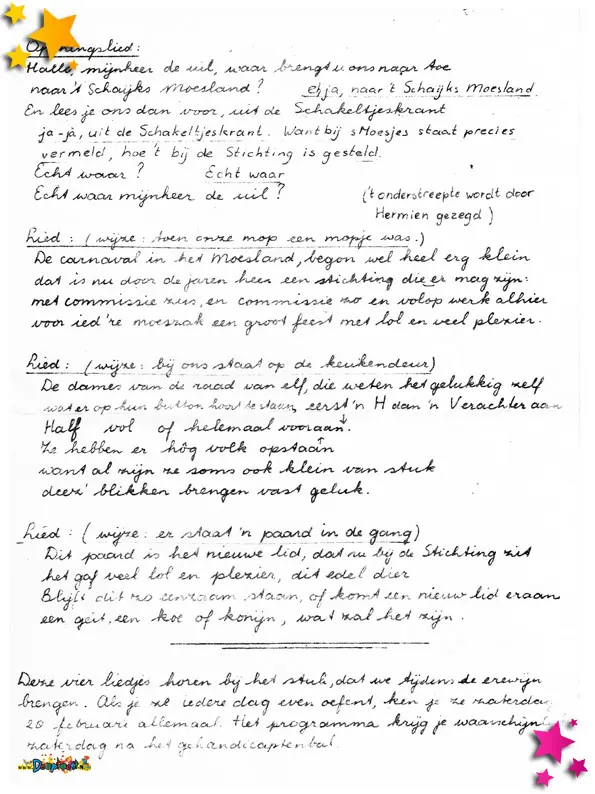 Openingslied:
Hallo, mijnheer de uil, waar brengt u ons naar toe
naar 't Schaijks Moesland? eh ja, naar 't Schaijks Moesland.
En lees je ons dan voor, uit de Schakeltjeskrant
ja-ja, uit de Schakeltjeskrant. Want bij sMoesjes staat precies
vermeld, hoe 't bij de Stichting is gesteld.
Echt waar? Echt waar
Echt waar mijnheer de uil? ('t onderstreepte wordt door
Hermien gezegd)
Lied: (wijze: toen onze mop een mopje was.)
De carnaval in het Moesland, begon wel heel erg klein
dat is nu door de jaren heen een stichting die er mag zijn:
met commissie zus, en commissie zo en volop werk alhier
voor ied're moeszak een groot feest met lol en veel plezier.
Lied: (wijze: bij ons staat op de keukendeur)
De dames van de raad van elf, die weten het gelukkig zelf
wat er op hun button hoort te staan, eerst 'n H dan 'n V erachter aan
Half vol of helemaal vooraan.
Ze hebben er hôg volk opstaan
want al zijn ze soms ook klein van stuk
deez' blikken brengen vast geluk.
Lied: (wijze: er staat 'n paard in de gang)
Dit paard is het nieuwe lid, dat nu bij de Stichting zit
het gaf veel lol en plezier, dit edel dier
Blijft dit zo eenzaam staan, of komt een nieuw lid eraan
een geit, een koe of konijn, wat zal het zijn.
Deze vier liedjes horen bij het stuk, dat we tijdens de erewijn
brengen. Als je ze iedere dag even oefent, ken je ze zaterdag
20 februari allemaal. Het programma krijg je waarschijnlijk
zaterdag na het gehandicaptenbal.